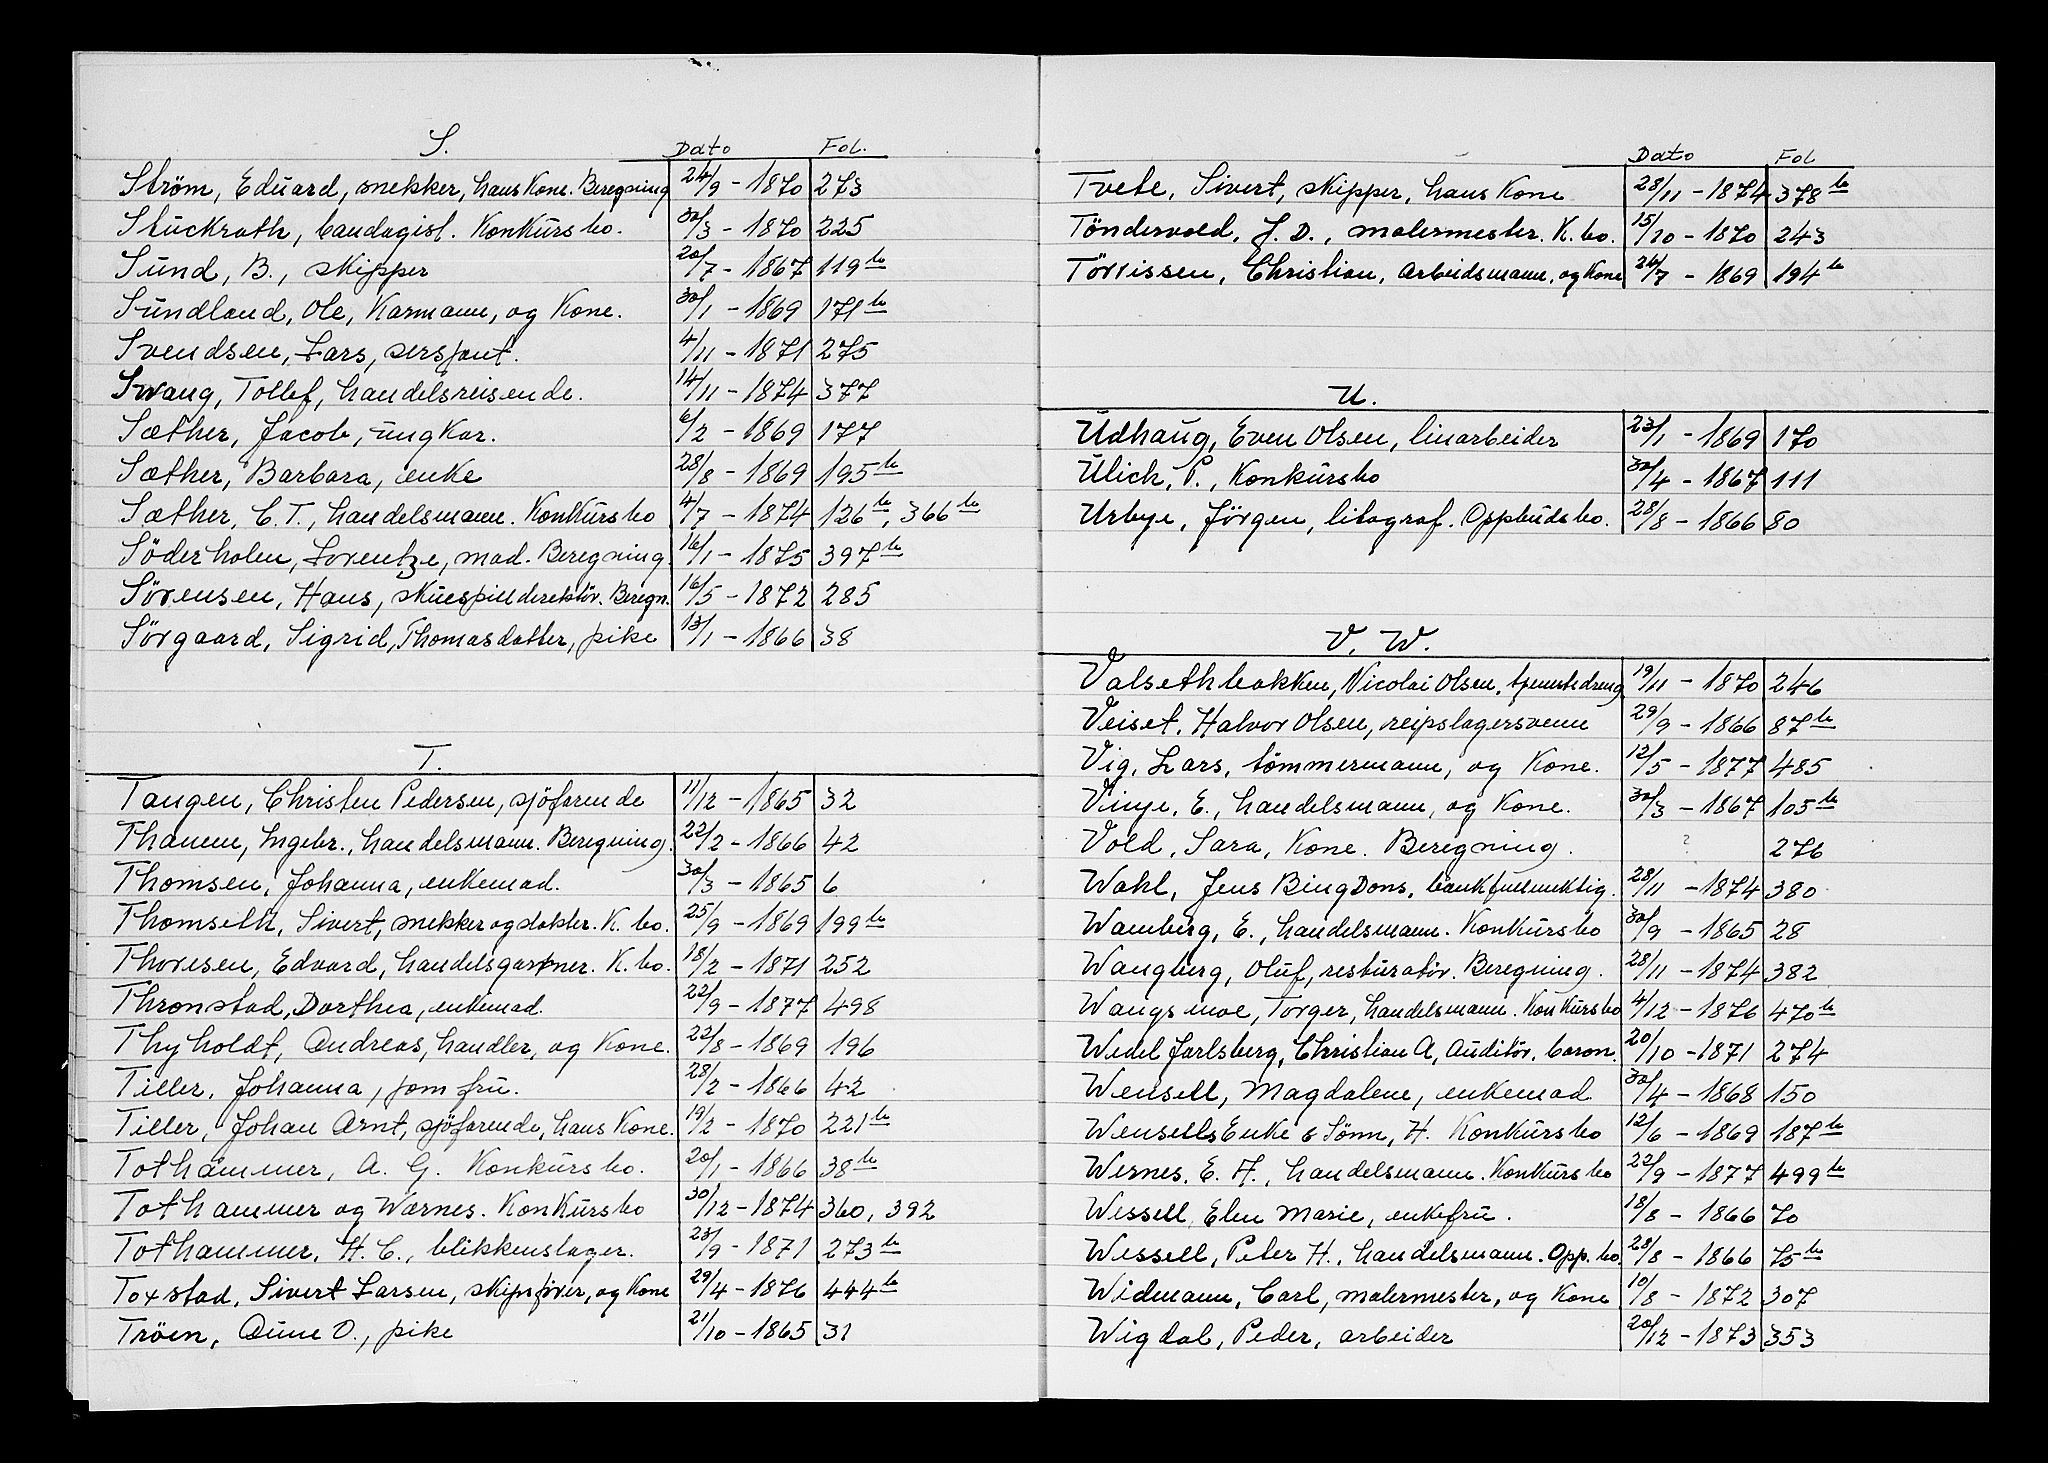 S. Dato Fol.
Ström, Eduard, snekker, hans Kone. Beregning 24/9 - 1870 273
Stuckrath, bandagist. Konkürsbo. 30/3 - 1870 225
Sünd, B., skipper 20/7 - 1867 119 b
Sündland, Ole, Karmann, og Kone. 30/1 - 1869 171 b
Svendsen, Lars, sersjant. 4/11 - 1871 275
Swang, Tollef, handelsreisende. 14/11 - 1874 377
Sæther, Jacob, üngkar. 6/2 - 1869 177
Sæther, Barbara, enke 28/8 - 1869 195 b
Sæther, C. T., handelsmann. Konkürsbo 4/7 - 1874 126 b, 366 b
Söderholm, Lorentze, mad. Beregning. 16/1 - 1875 397 b
Sörensen, Hans, skuespilldirektör. Beregn. 16/5 - 1872 285
Sörgaard, Sigrid, Thomasdatter, pike 13/1 - 1866 38
T.
Tangen, Christen Pedersen, sjöfarende 11/12 - 1865 32
Thamm, Ingebr., handelsmann. Beregning. 22/2 - 1866 42
Thomsen, Johanna, enkemad. 30/3 - 1865 6
Thomseth, Sivert, snekker og dokter. K. bo. 25/9 - 1869 199 b
Thoresen, Edvard, handelsgartner. K. bo. 18/2 - 1871 252
Thronstad, Dorthea, enkemad. 22/9 - 1877 498
Thyholdt, Andreas, handler, og Kone. 22/8 - 1869 196
Tiller, Johanna, jomfrü. 28/2 - 1866 42
Tiller, Johan Arnt, sjöfarende, hans Kone. 19/2 - 1870 221 b
Tothammer, A. G. Konkürsbo. 20/1 - 1866 38 b
Tothammer og Wærnes. Konkürsbo 30/12 - 1874 360, 392
Tothammer, H. C., blikkenslager. 23/9 - 1871 273 b
Toxstad, Sivert Larsen, skipsförer, og Kone 29/4 - 1876 444 b
Tröen, Anne O., pike 21/10 - 1865 31
Dato Fol
Tvete, Sivert, skipper, hans Kone 28/11 - 1874 378 b
Töndervold, J. D., malermester. K. bo. 15/10 - 1870 243
Törrissen, Christian, arbeidsmann, og Kone 26/7 - 1869 194 b
U.
Udhaug, Even Olsen, linarbeider 23/1 - 1869 170
Ulich, P., Konkürsbo 30/4 - 1867 111
Urbye, Jörgen, litograf. Oppbudsbo. 28/8 - 1866 80
V. W.
Valsethbakken, Nicolai Olsen, tjenestedreng 19/11 - 1870 246
Veiset, Halvor Olsen, reipslagersvenn 29/9 - 1866 87 b
Vig, Lars, tömmermann, og Kone. 12/5 - 1877 485
Vinje, E., handelsmann, og Kone. 30/3 - 1867 105 b
Vold, Sara, Kone. Beregning. ? 276
Wahl, Jens Bing Dons, bankfuldmektig. 28/11 - 1874 380
Wamberg, E., handelsmann. Konkürsbo 30/9 - 1865 28
Wangberg, Oluf, restüratör. Beregning. 28/11 - 1874 382
Wangsmoe, Torger, handelsmann. Konkürsbo 4/12 - 1876 470 b
Wedel Jarlsberg, Christian A, Auditör, baron. 20/10 - 1871 274
Wensell, Magdalene, enkemad 30/4 - 1868 150
Wensells Enke & Sönn, H. Konkürsbo 12/6 - 1869 187 b
Wernes, E. A., handelsmann. Konkürsbo 22/9 - 1877 499 b
Wessell, Elen Marie, enkefru. 18/8 - 1866 70
Wessell, Peter H., handelsmann. Opp. bo. 28/8 - 1866 75 b
Widmann, Carl, malermester, og Kone 10/8 - 1872 307
Wigdal, Peder, arbeider 20/12 - 1873 353